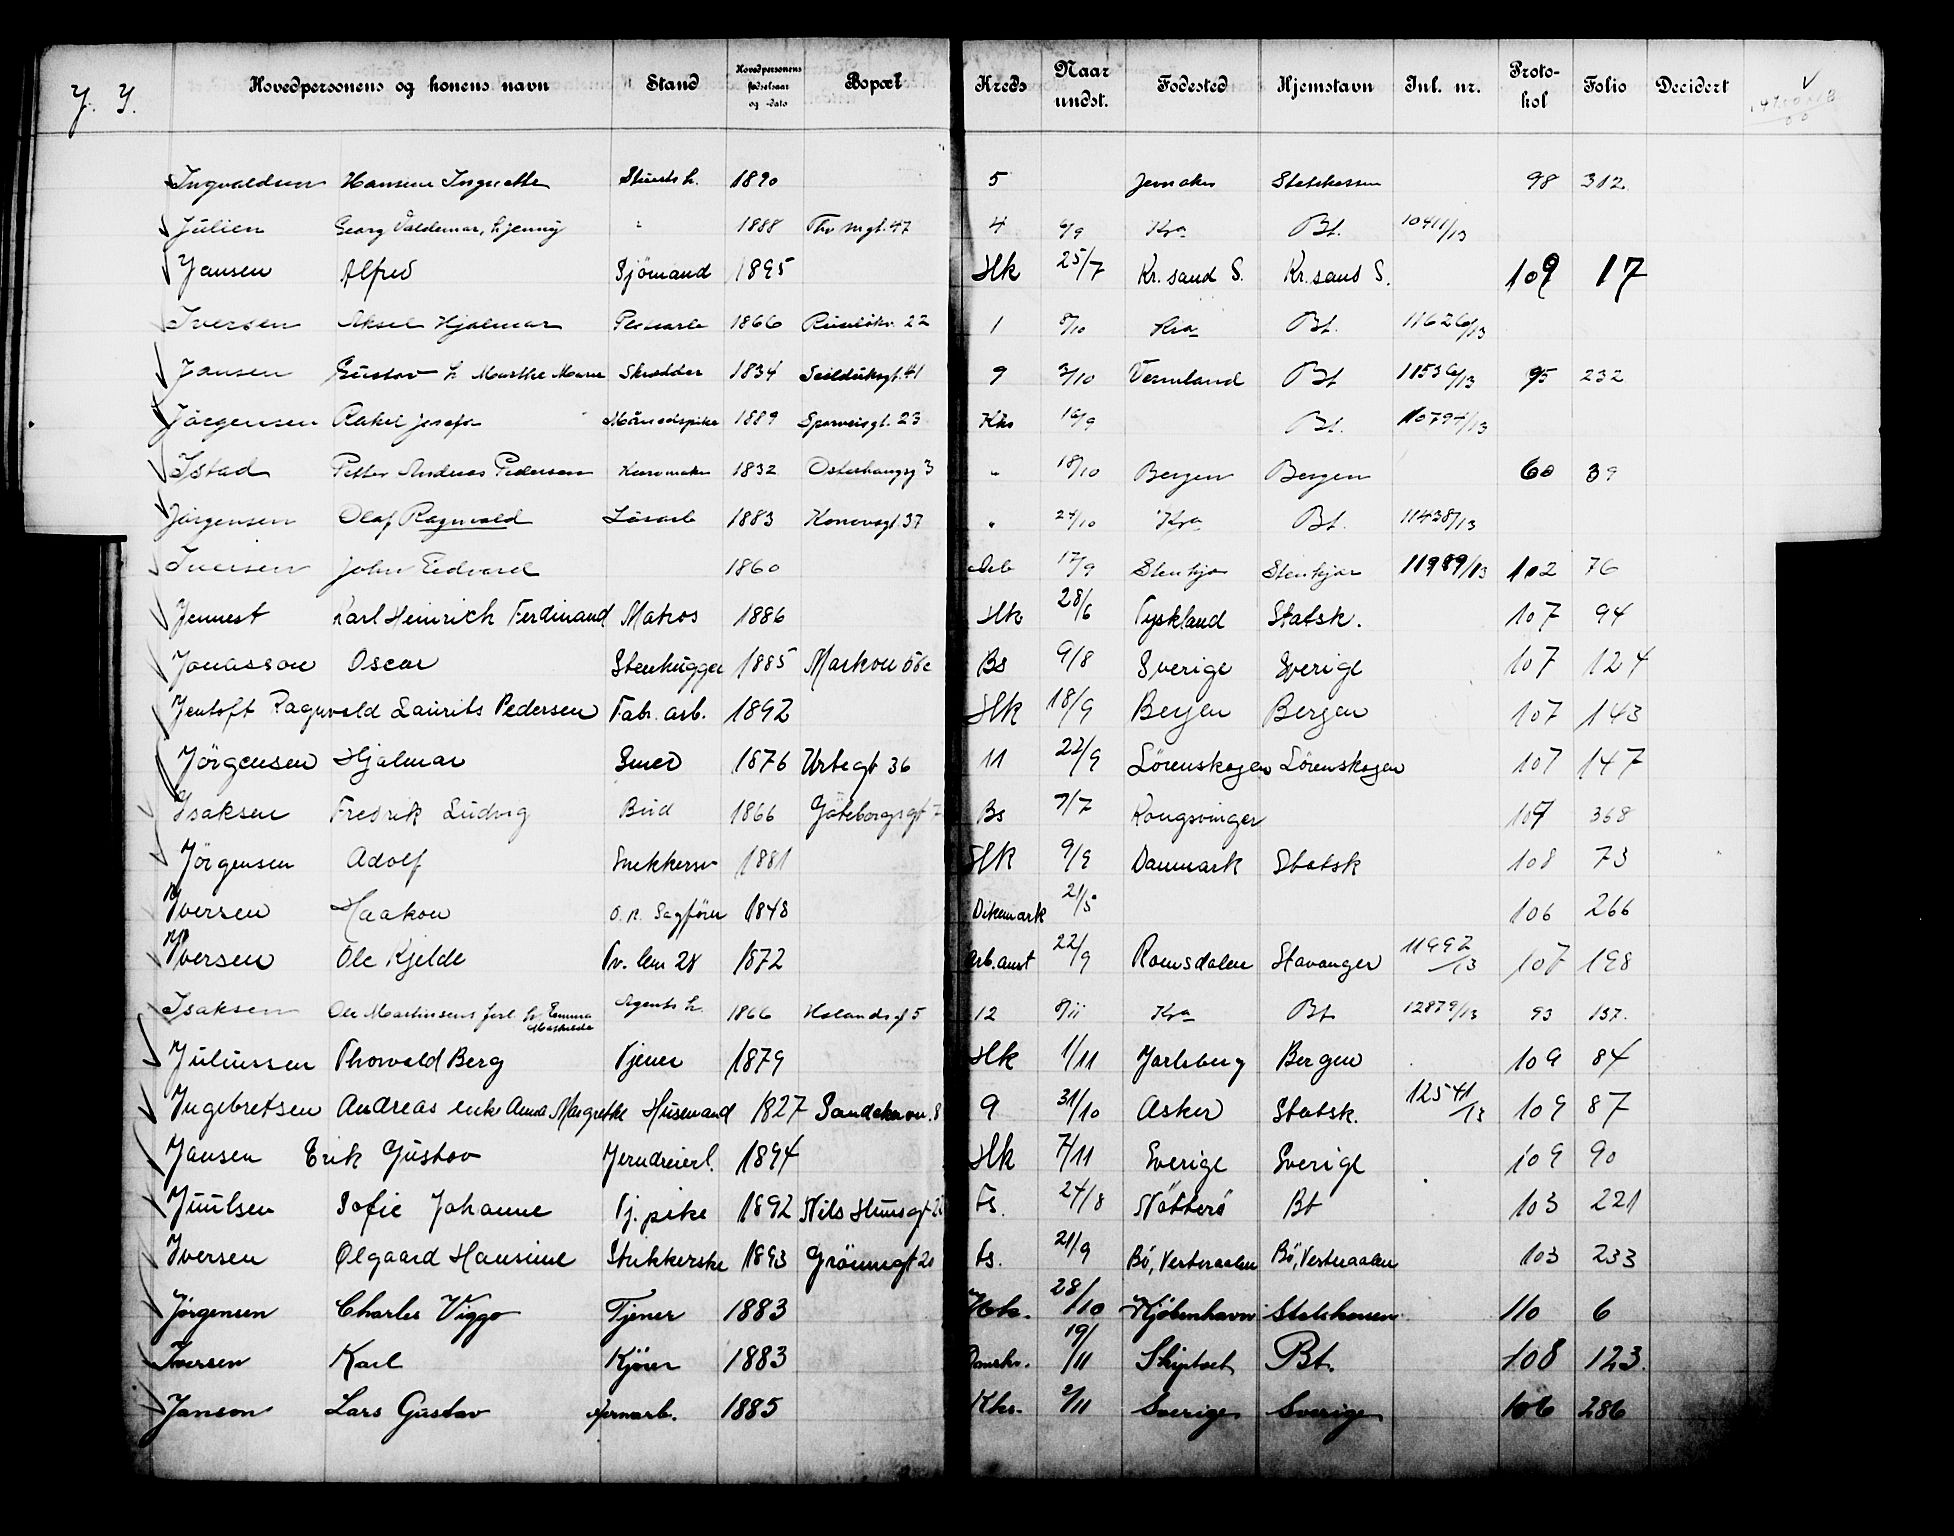 J. I. Hovedpersonens og konens navn Stand Hovedpersonens fødselsaar og -dato Bopæl Kreds Naar undst. Fødested Hjemstavn Inl. nr. Proto-kol Folio Decidert
Ingvaldsen Hansine Stuerts h. 1890 5 Jevnaker Statskassen 98 312
Julien Georg Valdemar, h. Jenny " 1888 Thv. mgt. 47 4 6/9 Kra Bt. 10411/13
Jensen Alfred Sjömand 1895 Hk 25/7 Kr.sand S. Kr.sand S. 109 17
Iversen Aksel Hjalmar 1866 22 1 8/10 Kra Bt. 11626/13
Jansen Gustav h Marthe Marie Skrædder 1834 Seilduksgt. 41 9 3/10 Vermland Bt 11536/13 95 232
Jörgensen Rakel Josefa 1889 Sporveisgt. 23 Khs 16/9 Bt. 10794/13
Istad Petter Andreas Pedersen 1832 3 " 18/10 Bergen Bergen 60 39
Jörgensen Olaf Ragnvald Lösarb 1883 37 " 24/10 Kra Bt. 11438/13
Iversen John Edvard 1860 Arb 17/9 Stenkjær Stenkjær 11989/13 102 76
Jennest Karl Heinrich Ferdinand Matros 1886 Hk 28/6 Tyskland Statsk. 107 94
Jonasson Oscar Stenhugger 1885 Bs 9/8 Sverige Sverige 107 124
Jentoft Ragnvald Laurits Pedersen Fabr. arb. 1892 Hk 18/9 Bergen Bergen 107 143
Jörgensen Hjalmar Smed 1876 Urtegt 36 11 22/9 Lörenskogen Lörenskogen 107 147
Isaksen Fredrik Ludvig Bud 1866 Göteborggt 7 Bs 7/7 Kongsvinger 107 368
Jörgensen Adolf Snekkersv 1881 Hk 9/9 Danmark Statsk 108 73
Iversen Haakon O. R. Sagförer 1848 Dikemark 21/5 106 266
Iversen Ole Kjelde Tv. lem 28 1872 Arb.anst 22/9 Romsdalen Stavanger 11992/13 107 198
Isaksen Ole Martinsens forl. h. Emma Mathilde Agents h. 1866 5 12 8/11 Kra Bt 12879/13 93 137.
Juliussen Thorvald Berg Tjener 1879 Hk 1/11 Jarlsberg Bergen 109 84
Ingebretsen Andreas enke Anna Margrethe Husmand 1827 8 9 31/10 Asker Statsk. 12541/13 109 87
Jansen Erik Gustav Jerndreierl. 1894 Hk 7/11 Sverige Sverige 109 90
Juulsen Sofie Johanne Tj. pike 1892 Nils Huusgt 22 Fs. 24/8 Nötterö Bt 103 221
Iversen Olgaard Hansine Strikkerske 1893 Grönnegt 20 Fs. 21/9 Bö, Vesteraalen Bö, Vesteraalen 103 233
Jörgensen Charles Viggo Tjener 1883 Hk. 28/10 Kjöbenhavn Statskassen 110 6
Iversen Karl Kjörer 1883 19/11 Skiptvet Bt. 108 123.
Janson Lars Gustav Jernarb. 1885 Khs. 2/11 Sverige Sverige 106 286